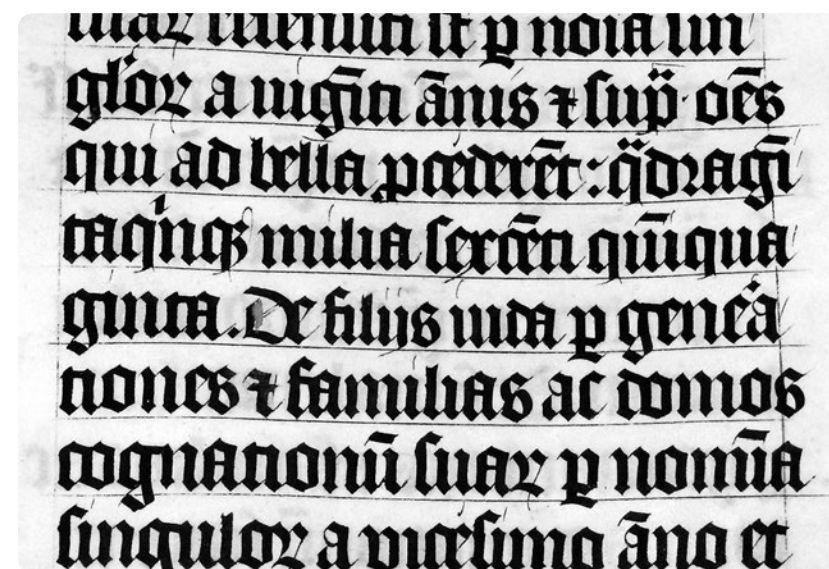 suaꝝ recensiti sūt ꝑ noīa sin
gl'oꝝ a uigīti ānis ⁊ sup̄ · oēs
qui ad bella ꝓcēderēt : q̈dragī
taqⁱnqꝫ milia sexcēti quīqua
ginta. De filijs iuda ꝑ genera
tiones ⁊ familias ac domos
cognationū suaꝝ ꝑ nomīa
singuloꝝ a vicesimo āno et